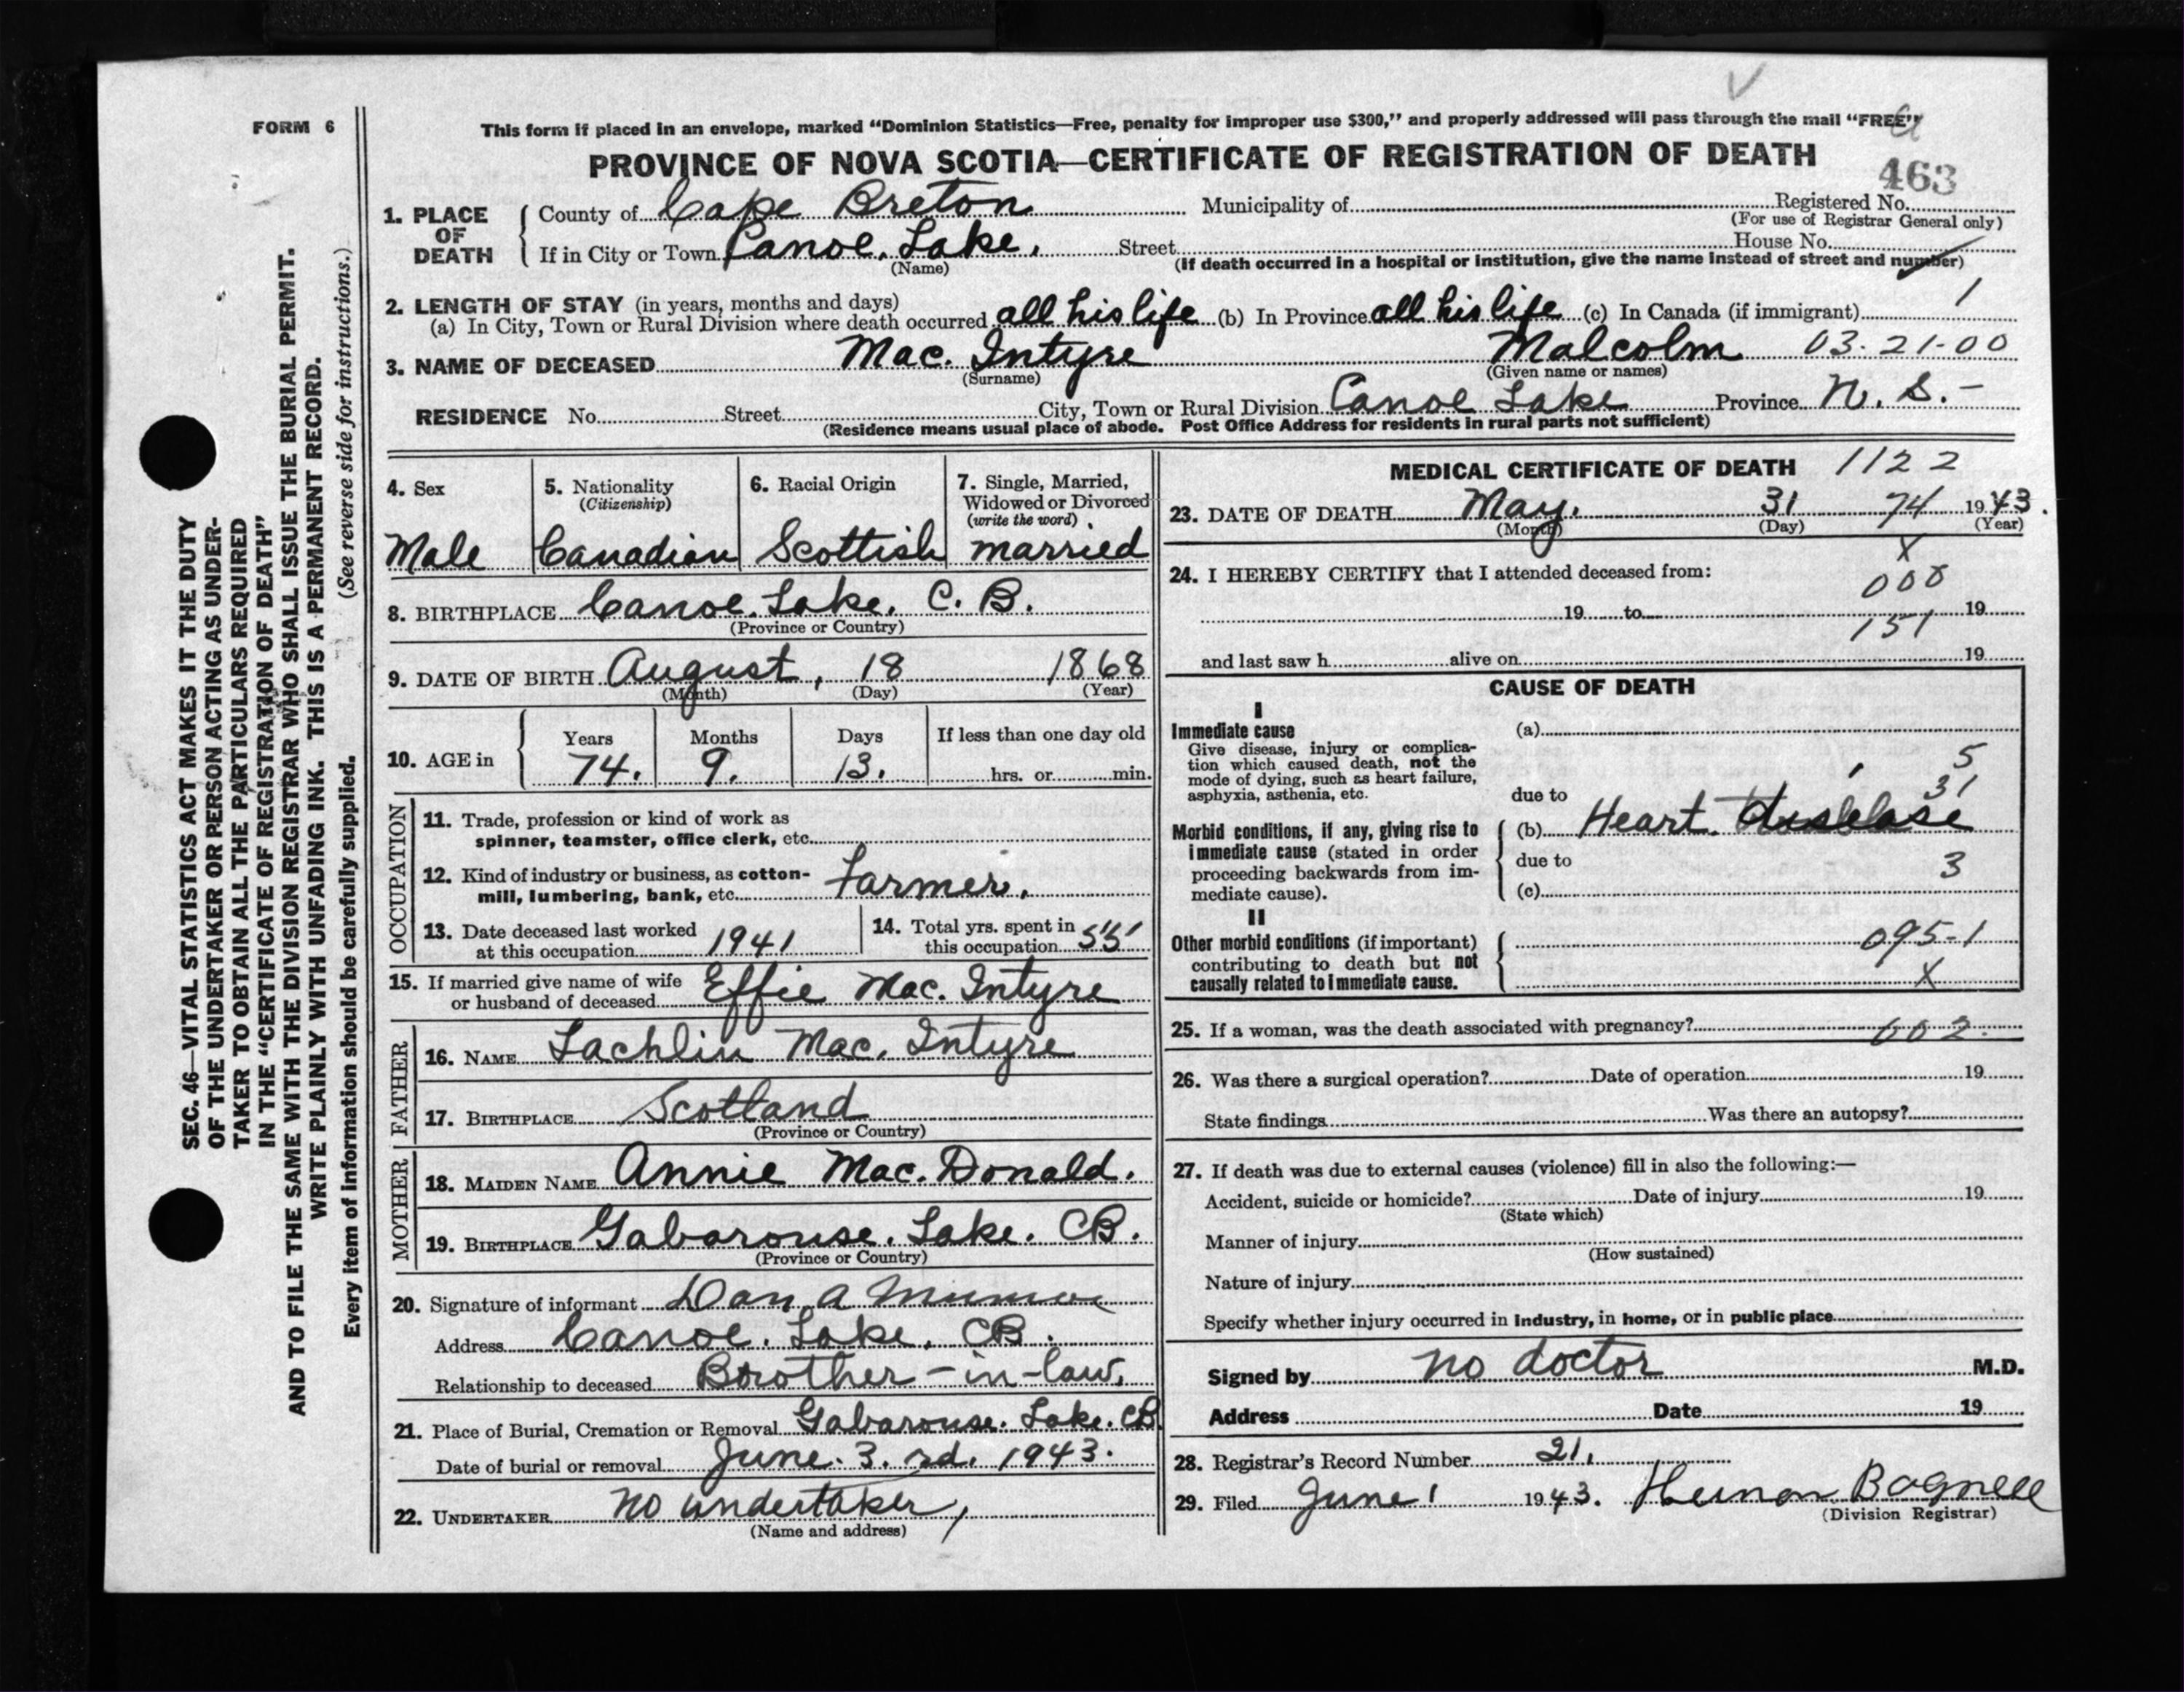 FORM 6
This form if placed in an envelope, marked "Dominion Statistics—Free, penalty for improper use $300," and properly addressed will pass through the mail "FREE"
PROVINCE OF NOVA SCOTIA—CERTIFICATE OF REGISTRATION OF DEATH
463
1. PLACE OF DEATH
County of Cape Breton Municipality of Registered No.
(For use of Registrar General only)
If in City or Town Canoe. Lake. Street House No.
(Name) (If death occurred in a hospital or institution, give the name instead of street and number)
2. LENGTH OF STAY (in years, months and days) 1
(a) In City, Town or Rural Division where death occurred all his life (b) In Province all his life (c) In Canada (if immigrant)
3. NAME OF DECEASED Mac. Intyre Malcolm 03-21-00
(Surname) (Given name or names)
RESIDENCE No. Street City, Town or Rural Division Canoe Lake Province N. S. -
(Residence means usual place of abode. Post Office Address for residents in rural parts not sufficient)
4. Sex
Male
5. Nationality
(Citizenship)
Canadian
6. Racial Origin
Scottish
7. Single, Married,
Widowed or Divorced
(write the word)
married
8. BIRTHPLACE Canoe. Lake. C. B.
(Province or Country)
9. DATE OF BIRTH August, 18 1868
(Month) (Day) (Year)
10. AGE in
Years Months Days If less than one day old
74. 9. 13. hrs. or min.
OCCUPATION
11. Trade, profession or kind of work as
spinner, teamster, office clerk, etc.
12. Kind of industry or business, as cotton-
mill, lumbering, bank, etc. Farmer.
13. Date deceased last worked
at this occupation 1941
14. Total yrs. spent in
this occupation 55
15. If married give name of wife
or husband of deceased Effie Mac. Intyre
FATHER
16. NAME Lachlin Mac. Intyre
17. BIRTHPLACE Scotland
(Province or Country)
MOTHER
18. MAIDEN NAME Annie Mac. Donald.
19. BIRTHPLACE Gabarouse. Lake. CB.
(Province or Country)
20. Signature of informant Dan A Munroe
Address Canoe. Lake. CB.
Relationship to deceased Brother-in-law.
21. Place of Burial, Cremation or Removal Gabarouse. Lake. CB
Date of burial or removal June. 3. rd. 1943.
22. UNDERTAKER no undertaker,
(Name and address)
MEDICAL CERTIFICATE OF DEATH 1122
23. DATE OF DEATH May. 31 74 1943.
(Month) (Day) (Year)
X
24. I HEREBY CERTIFY that I attended deceased from: 000
19 to 19
151
and last saw h alive on 19
CAUSE OF DEATH
I
Immediate cause (a)
Give disease, injury or complica-
tion which caused death, not the 5
mode of dying, such as heart failure,
asphyxia, asthenia, etc. due to 31
Morbid conditions, if any, giving rise to (b) Heart. disease
immediate cause (stated in order due to
proceeding backwards from im- 3
mediate cause). (c)
II
Other morbid conditions (if important) 095-1
contributing to death but not
causally related to immediate cause. X
25. If a woman, was the death associated with pregnancy? 002.
26. Was there a surgical operation? Date of operation 19
State findings Was there an autopsy?
27. If death was due to external causes (violence) fill in also the following:—
Accident, suicide or homicide? Date of injury 19
(State which)
Manner of injury
(How sustained)
Nature of injury
Specify whether injury occurred in industry, in home, or in public place
Signed by no doctor M.D.
Address Date 19
28. Registrar's Record Number 21.
29. Filed June 1 1943. Bagnell
(Division Registrar)
SEC. 46—VITAL STATISTICS ACT MAKES IT THE DUTY
OF THE UNDERTAKER OR PERSON ACTING AS UNDER-
TAKER TO OBTAIN ALL THE PARTICULARS REQUIRED
IN THE "CERTIFICATE OF REGISTRATION OF DEATH"
AND TO FILE THE SAME WITH THE DIVISION REGISTRAR WHO SHALL ISSUE THE BURIAL PERMIT.
WRITE PLAINLY WITH UNFADING INK. THIS IS A PERMANENT RECORD.
Every item of information should be carefully supplied. (See reverse side for instructions.)